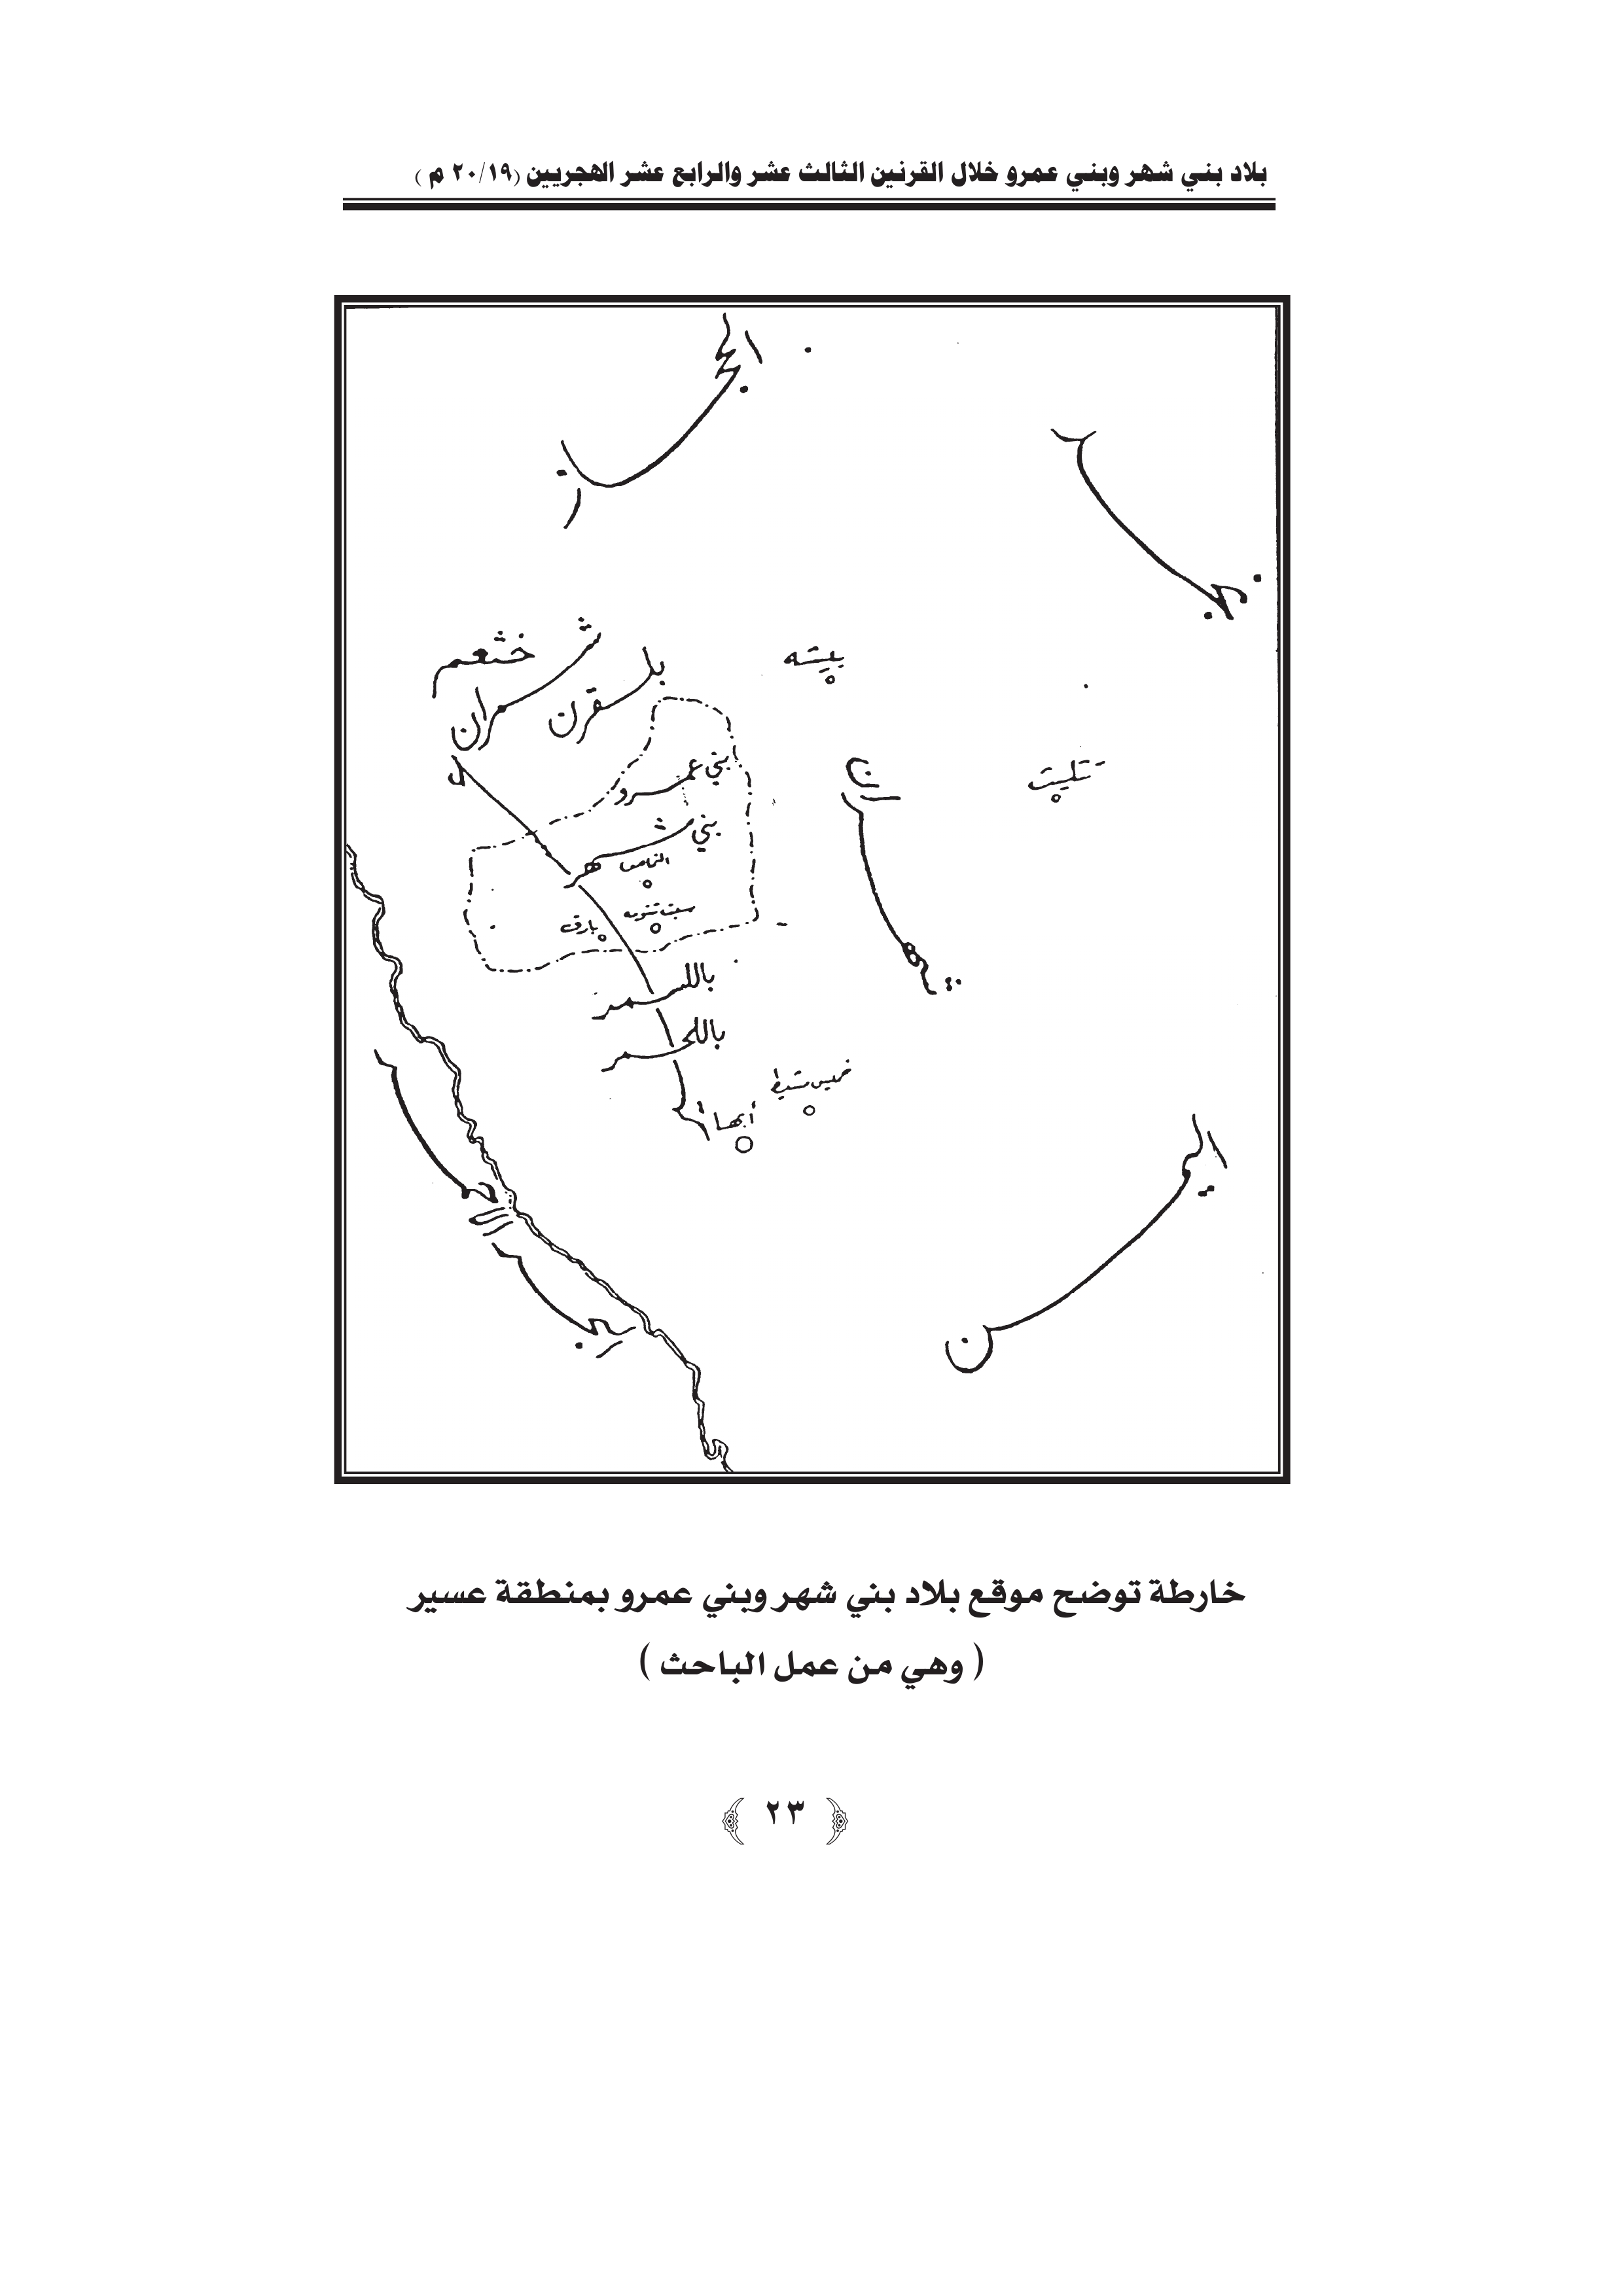 بلاد بني شهر وبني عمرو خلال القرنين الثالث عشر والرابع عشر الهجريين (٢٠/١٩ م )
الحجاز
نجد
خثعم
شمران
بلقرن
بيشه
بني عمرو
تثليث
بني شهر
النماص
سبت تنومه
بارق
شهران
باللسمر
باللحمر
خميس مشيط
أبها
البحر
اليمن
خارطة توضح موقع بلاد بني شهر وبني عمرو بمنطقة عسير
( وهي من عمل الباحث )
٢٣